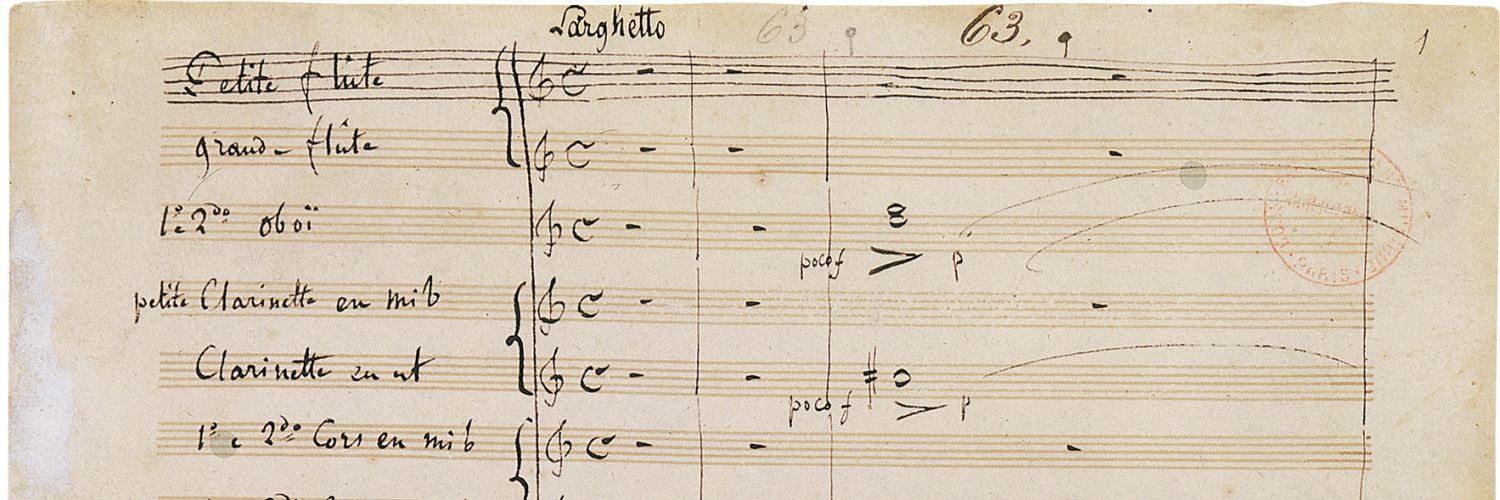 Larghetto 63 63. 1
Petite flûte
grande flûte
1º e 2do oboï
pocof > p
petite Clarinette en mi b
Clarinette en ut
poco f > p
1º e 2do Cors en mi b